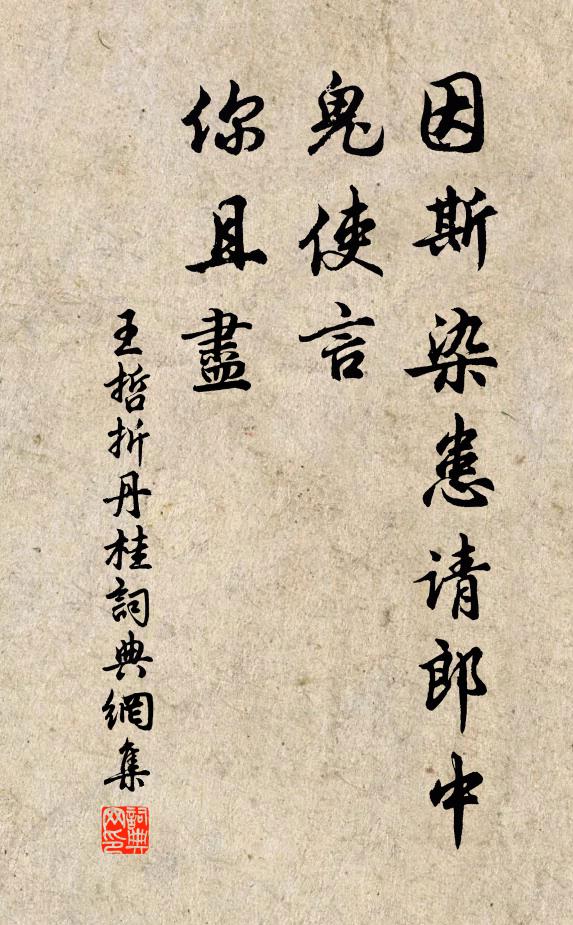 因斯染患请郎中
鬼使言
你且盡
王哲折丹桂詞典網集
詞典网印